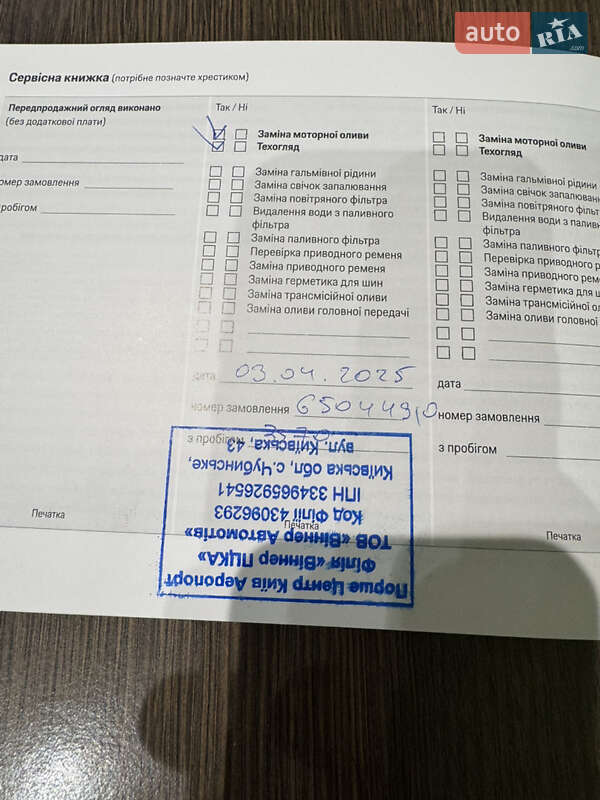 auto RIA.com
Сервісна книжка (потрібне позначте хрестиком)
Передпродажний огляд виконано
(без додаткової плати)
дата
номер замовлення
з пробігом
Печатка
Так / Ні
Заміна моторної оливи
Техогляд
Заміна гальмівної рідини
Заміна свічок запалювання
Заміна повітряного фільтра
Видалення води з паливного
фільтра
Заміна паливного фільтра
Перевірка приводного ременя
Заміна приводного ременя
Заміна герметика для шин
Заміна трансмісійної оливи
Заміна оливи головної передачі
дата 03.04.2025
номер замовлення 650449,0
з пробігом
Печатка
Порше Центр Київ Аеропорт
Філія «Віннер ПЦКА»
ТОВ «Віннер Автомотів»
Код Філії 43096293
ІПН 334965926541
Київська обл, с.Чубинське,
вул. Київська, 43
Так / Ні
Заміна моторної оливи
Техогляд
Заміна гальмівної рідини
Заміна свічок запалюванн
Заміна повітряного фільт
Видалення води з пал
фільтра
Заміна паливного філь
Перевірка приводного р
Заміна приводного реме
Заміна герметика для ш
Заміна трансмісійної ол
Заміна оливи головної
дата
номер замовлення
з пробігом
Печатка